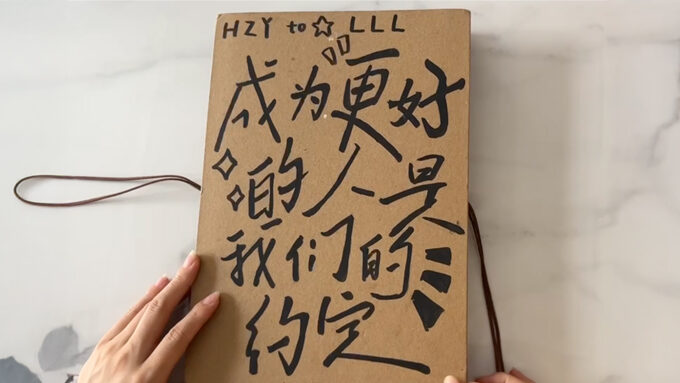 HZY to ☆ LLL
成为更好
的人是
我们的
约定